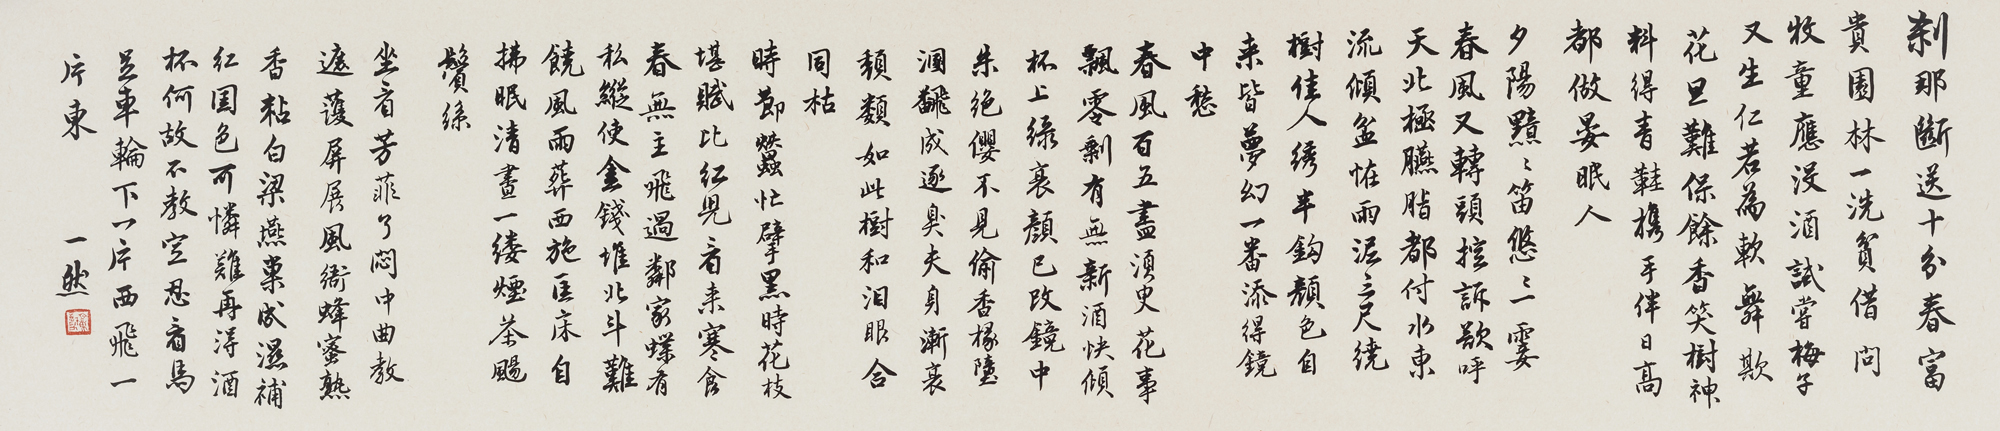 刹那斷送十分春富
貴園林一洗貧借問
牧童應沒酒試嘗梅子
又生仁若為軟舞欺
花旦難保餘香笑樹神
料得青鞋攜手伴日高
都做晏眠人
夕陽黯〻笛悠〻一霎
春風又轉頭控訴欲呼
天北極臙脂都付水東
流傾盆怪雨泥三尺繞
樹佳人繡半鈎顏色自
来皆夢幻一番添得鏡
中愁
春風百五盡須臾花事
飄零剩有無新酒快傾
杯上綠衰顏已改鏡中
朱絕纓不見偷香椽墮
溷翻成逐臭夫身漸衰
頹類如此樹和淚眼合
同枯
時節蠶忙擘黑時花枝
堪賦比紅兒看来寒食
春無主飛過鄰家蝶有
私縱使金錢堆北斗難
饒風雨葬西施匡床自
拂眠清晝一縷煙茶颺
鬢絲
坐看芳菲了悶中曲教
遮護屏展風衙蜂蜜熟
香粘白梁燕巢成濕補
紅國色可憐難再得酒
杯何故不教空忍看馬
足車輪下一片西飛一
片東
一然